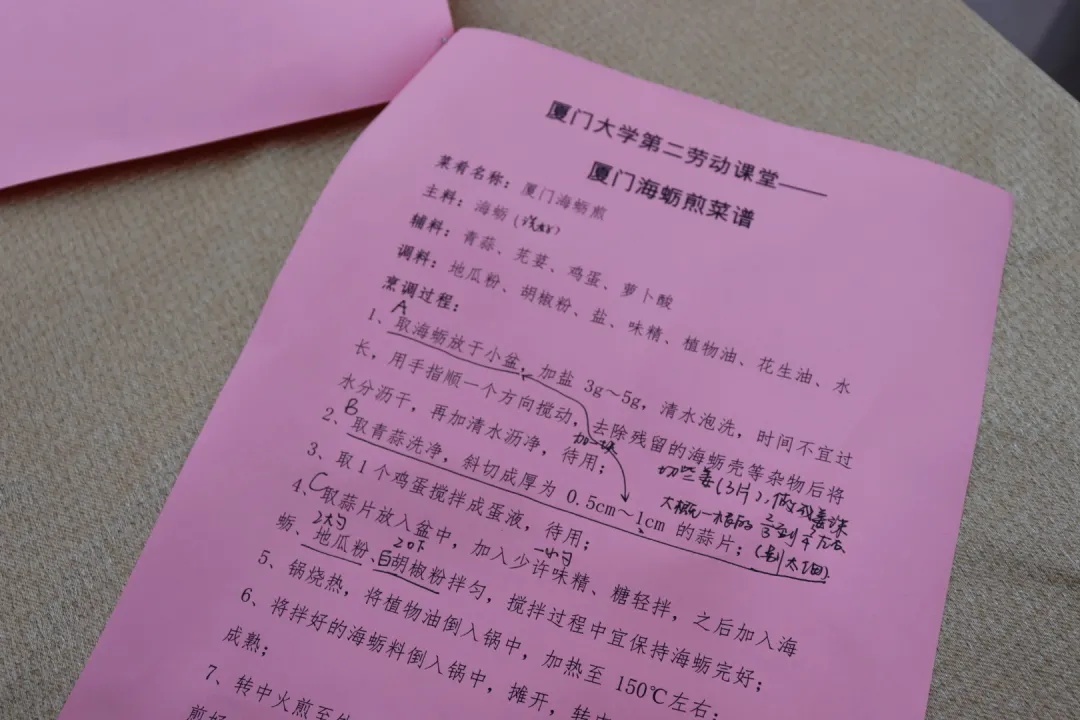 厦门大学第二劳动课堂——
厦门海蛎煎菜谱
菜肴名称：厦门海蛎煎
主料：海蛎（洗好）
辅料：青蒜、芫荽、鸡蛋、萝卜酸
调料：地瓜粉、胡椒粉、盐、味精、植物油、花生油、水
烹调过程：
A
1、取海蛎放于小盆，加盐 3g～5g，清水泡洗，时间不宜过
长，用手指顺一个方向搅动，去除残留的海蛎壳等杂物后将
水分沥干，再加清水沥净，待用；
加一块
B
2、取青蒜洗净，斜切成厚为 0.5cm～1cm 的蒜片；
切些姜（3片），做成姜沫
大概一根的
（别太细）
3、取 1 个鸡蛋搅拌成蛋液，待用；
C
4、取蒜片放入盆中，加入少许味精、糖轻拌，之后加入海
2大勺
20下
一小勺
蛎、地瓜粉、白胡椒粉拌匀，搅拌过程中宜保持海蛎完好；
5、锅烧热，将植物油倒入锅中，加热至 150℃左右；
6、将拌好的海蛎料倒入锅中，摊开，转中
成熟；
7、转中火煎至
煎好